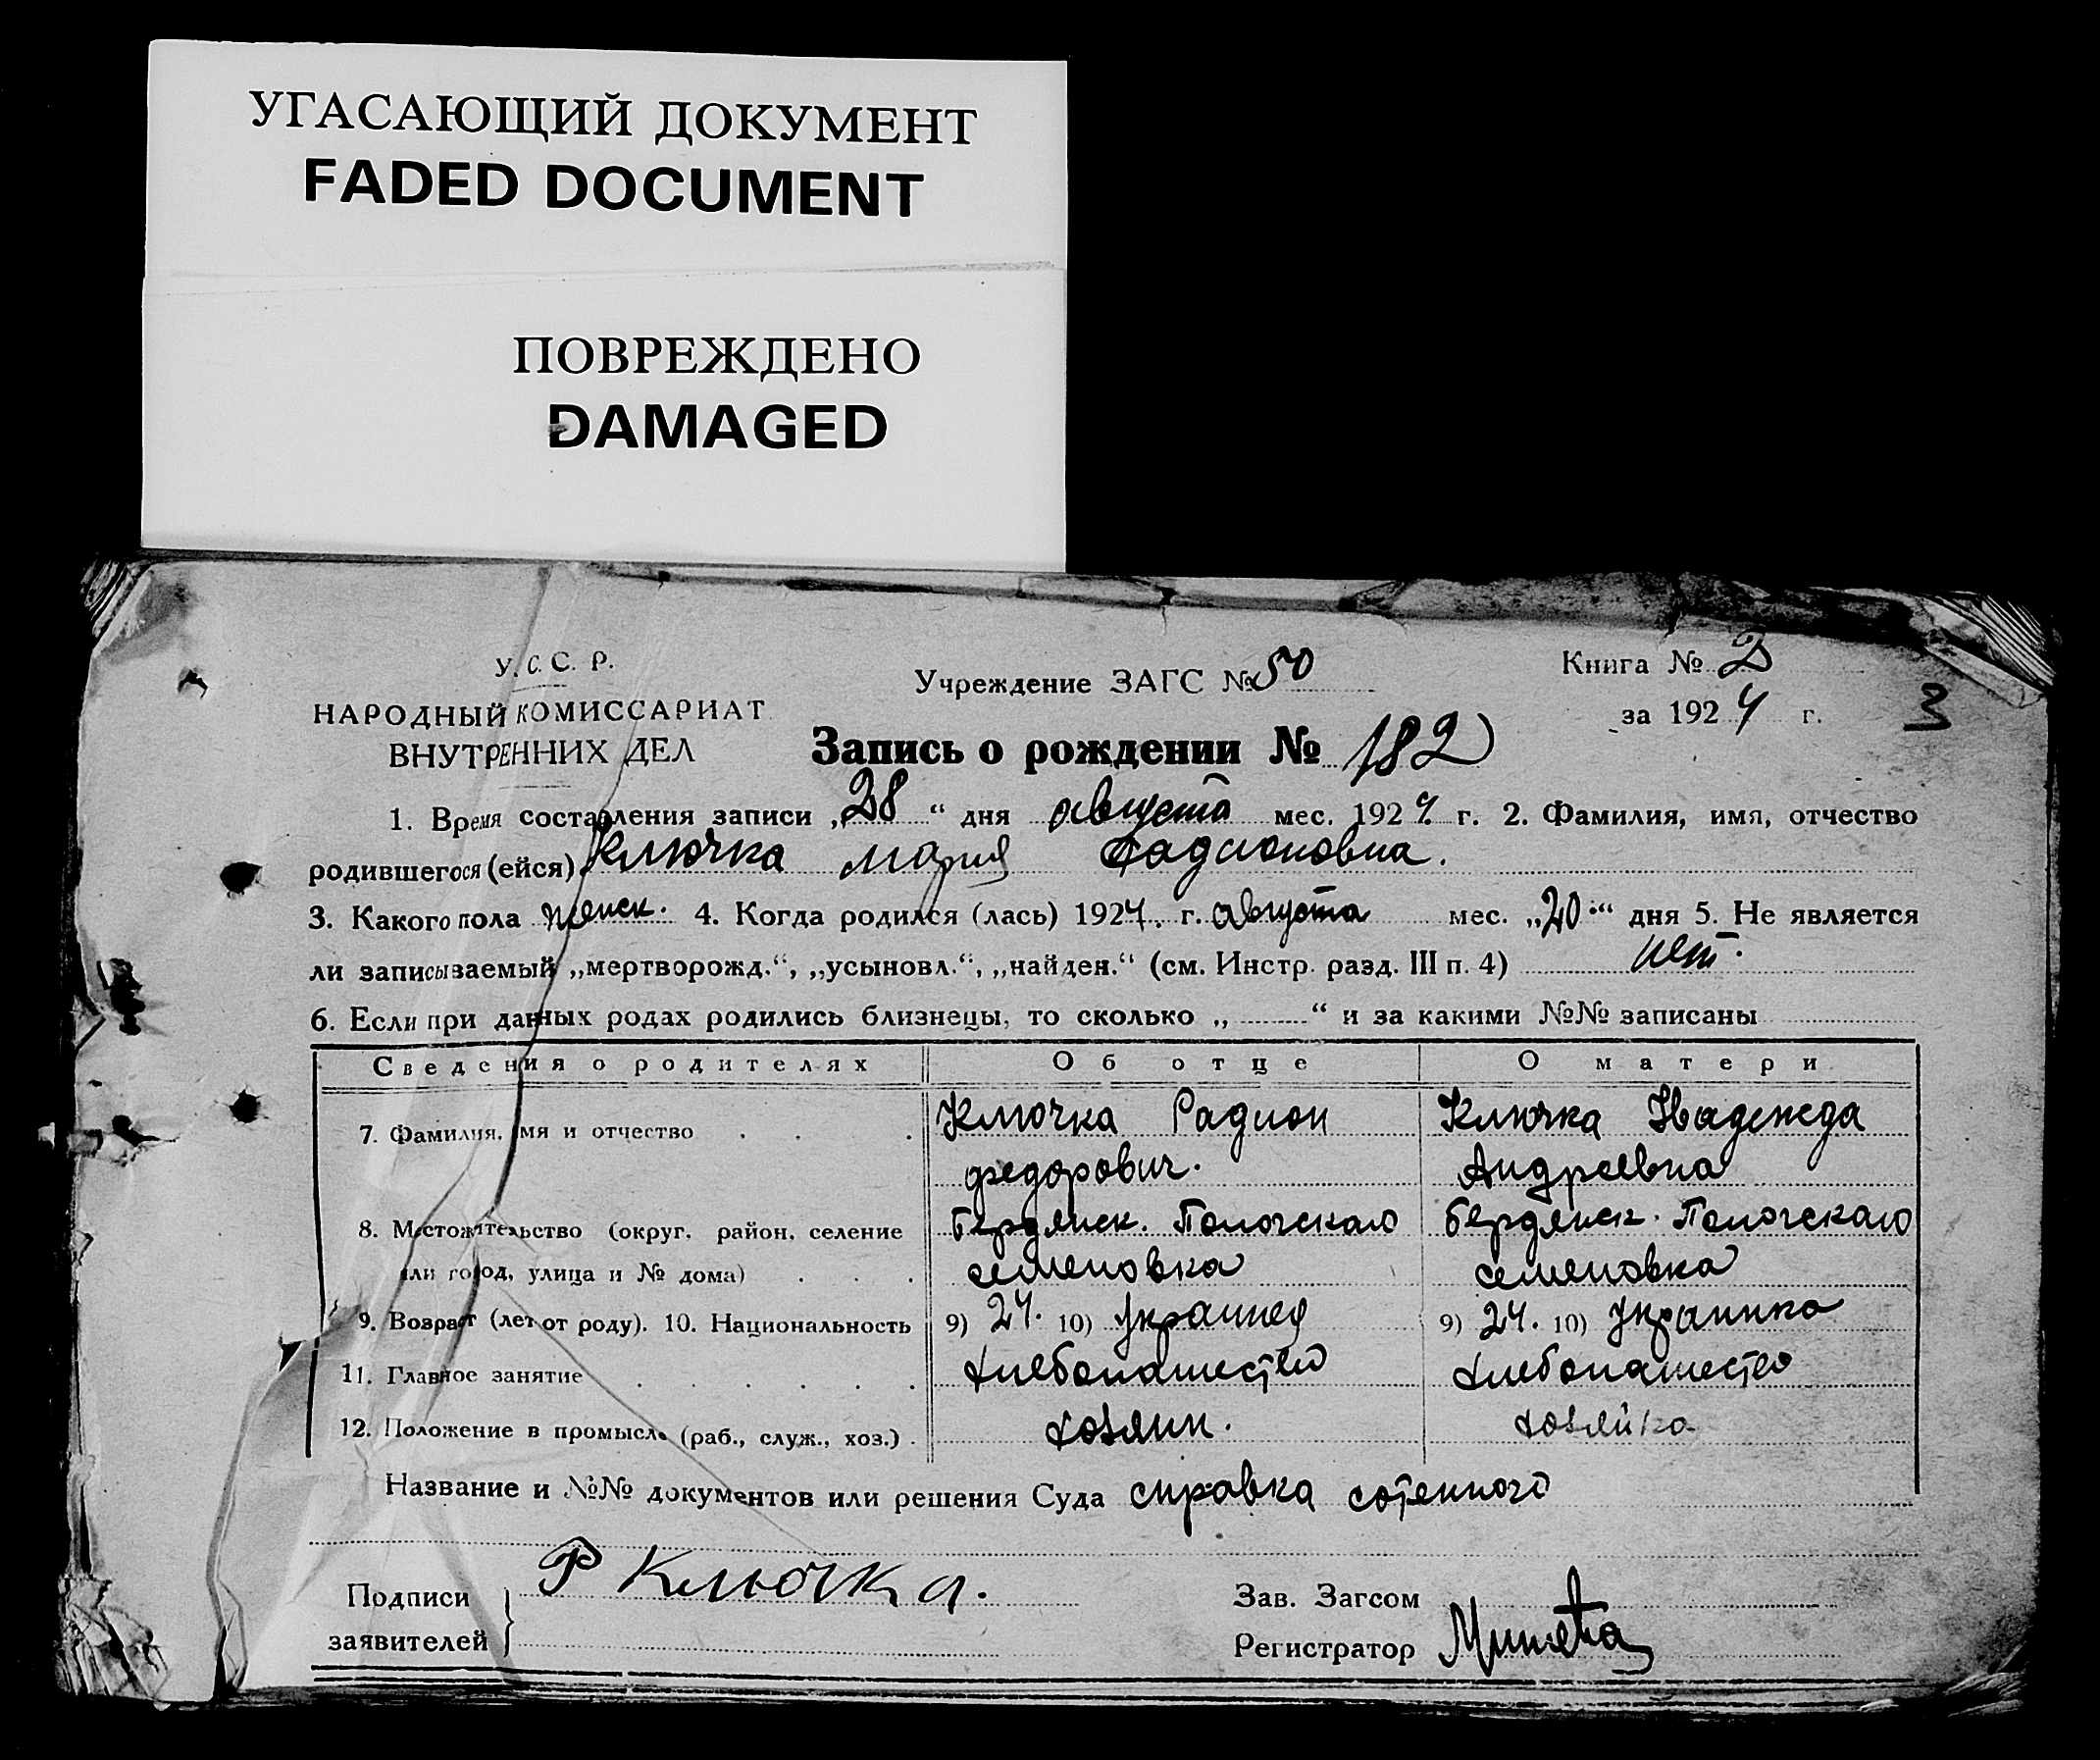 УГАСАЮЩИЙ ДОКУМЕНТ
FADED DOCUMENT
ПОВРЕЖДЕНО
DAMAGED
У. С. С. Р.
НАРОДНЫЙ КОМИССАРИАТ
ВНУТРЕННИХ ДЕЛ
Учреждение ЗАГС № 50
Книга № 2
за 1924 г.
3
Запись о рождении № 182
1. Время составления записи „28“ дня августа мес. 1924 г. 2. Фамилия, имя, отчество
родившегося (ейся) Ключка Мария Радионовна.
3. Какого пола женск. 4. Когда родился (лась) 1924. г. августа мес. „20.“ дня 5. Не является
ли записываемый „мертворожд.“, „усыновл.“, „найден.“ (см. Инстр. разд. III п. 4) нет.
6. Если при данных родах родились близнецы, то сколько „ “ и за какими №№ записаны
Сведения о родителях Об отце О матери
7. Фамилия, имя и отчество . . . Ключка Радион Ключка Надежда
федорович. Андреевна
8. Местожительство (округ, район, селение Бердянск. Пологскаго Бердянск. Пологскаго
или город, улица и № дома) . . . семеновка семеновка
9. Возраст (лет от роду). 10. Национальность 9) 24. 10) Украинец 9) 24. 10) Украинка
11. Главное занятие . . . . . . хлебопашество хлебопашество
12. Положение в промысле (раб., служ., хоз.) . хозяин. хозяйка
Название и №№ документов или решения Суда справка сотенного
Подписи
заявителей
Р Ключка.
Зав. Загсом
Регистратор